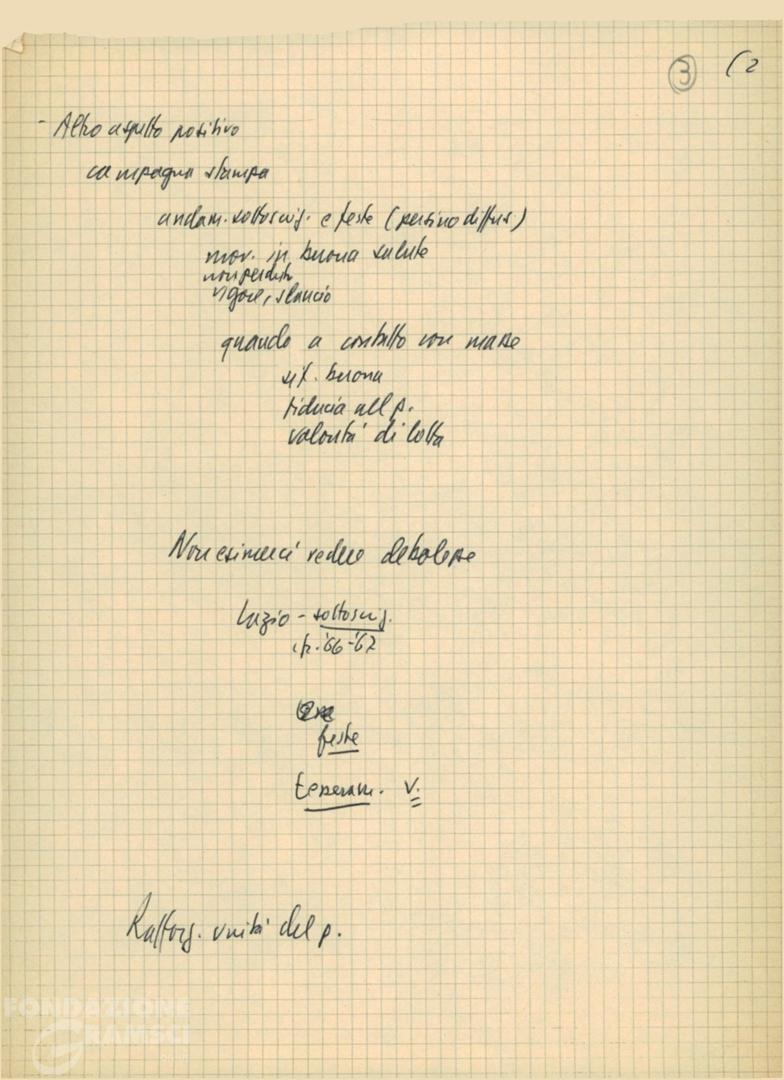 ③ (2
- Altro aspetto positivo
campagna stampa
andam. sottoscriz. e feste (persino diffus.)
mov. in buona salute
non perduto
vigore, slancio
quando a contatto con masse
sit. buona
fiducia nel p.
volontà di lotta
Non esimerci vedere debolezze
Lazio - sottoscriz.
'66-'67
feste
tesseram. V.
Rafforz. unità del p.
FONDAZIONE
GRAMSCI